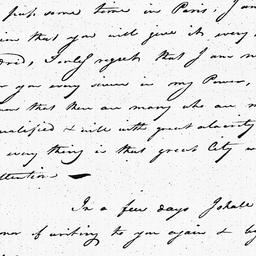 pass some time in Paris; I am
tion that you will give it every
dred, I only regret that I am n
r you every service in my Power,
own that there are many who are m
ualified & will with great alacrity
every thing in that great City w
ttention —
In a few days I shall
nor of writing to you again &